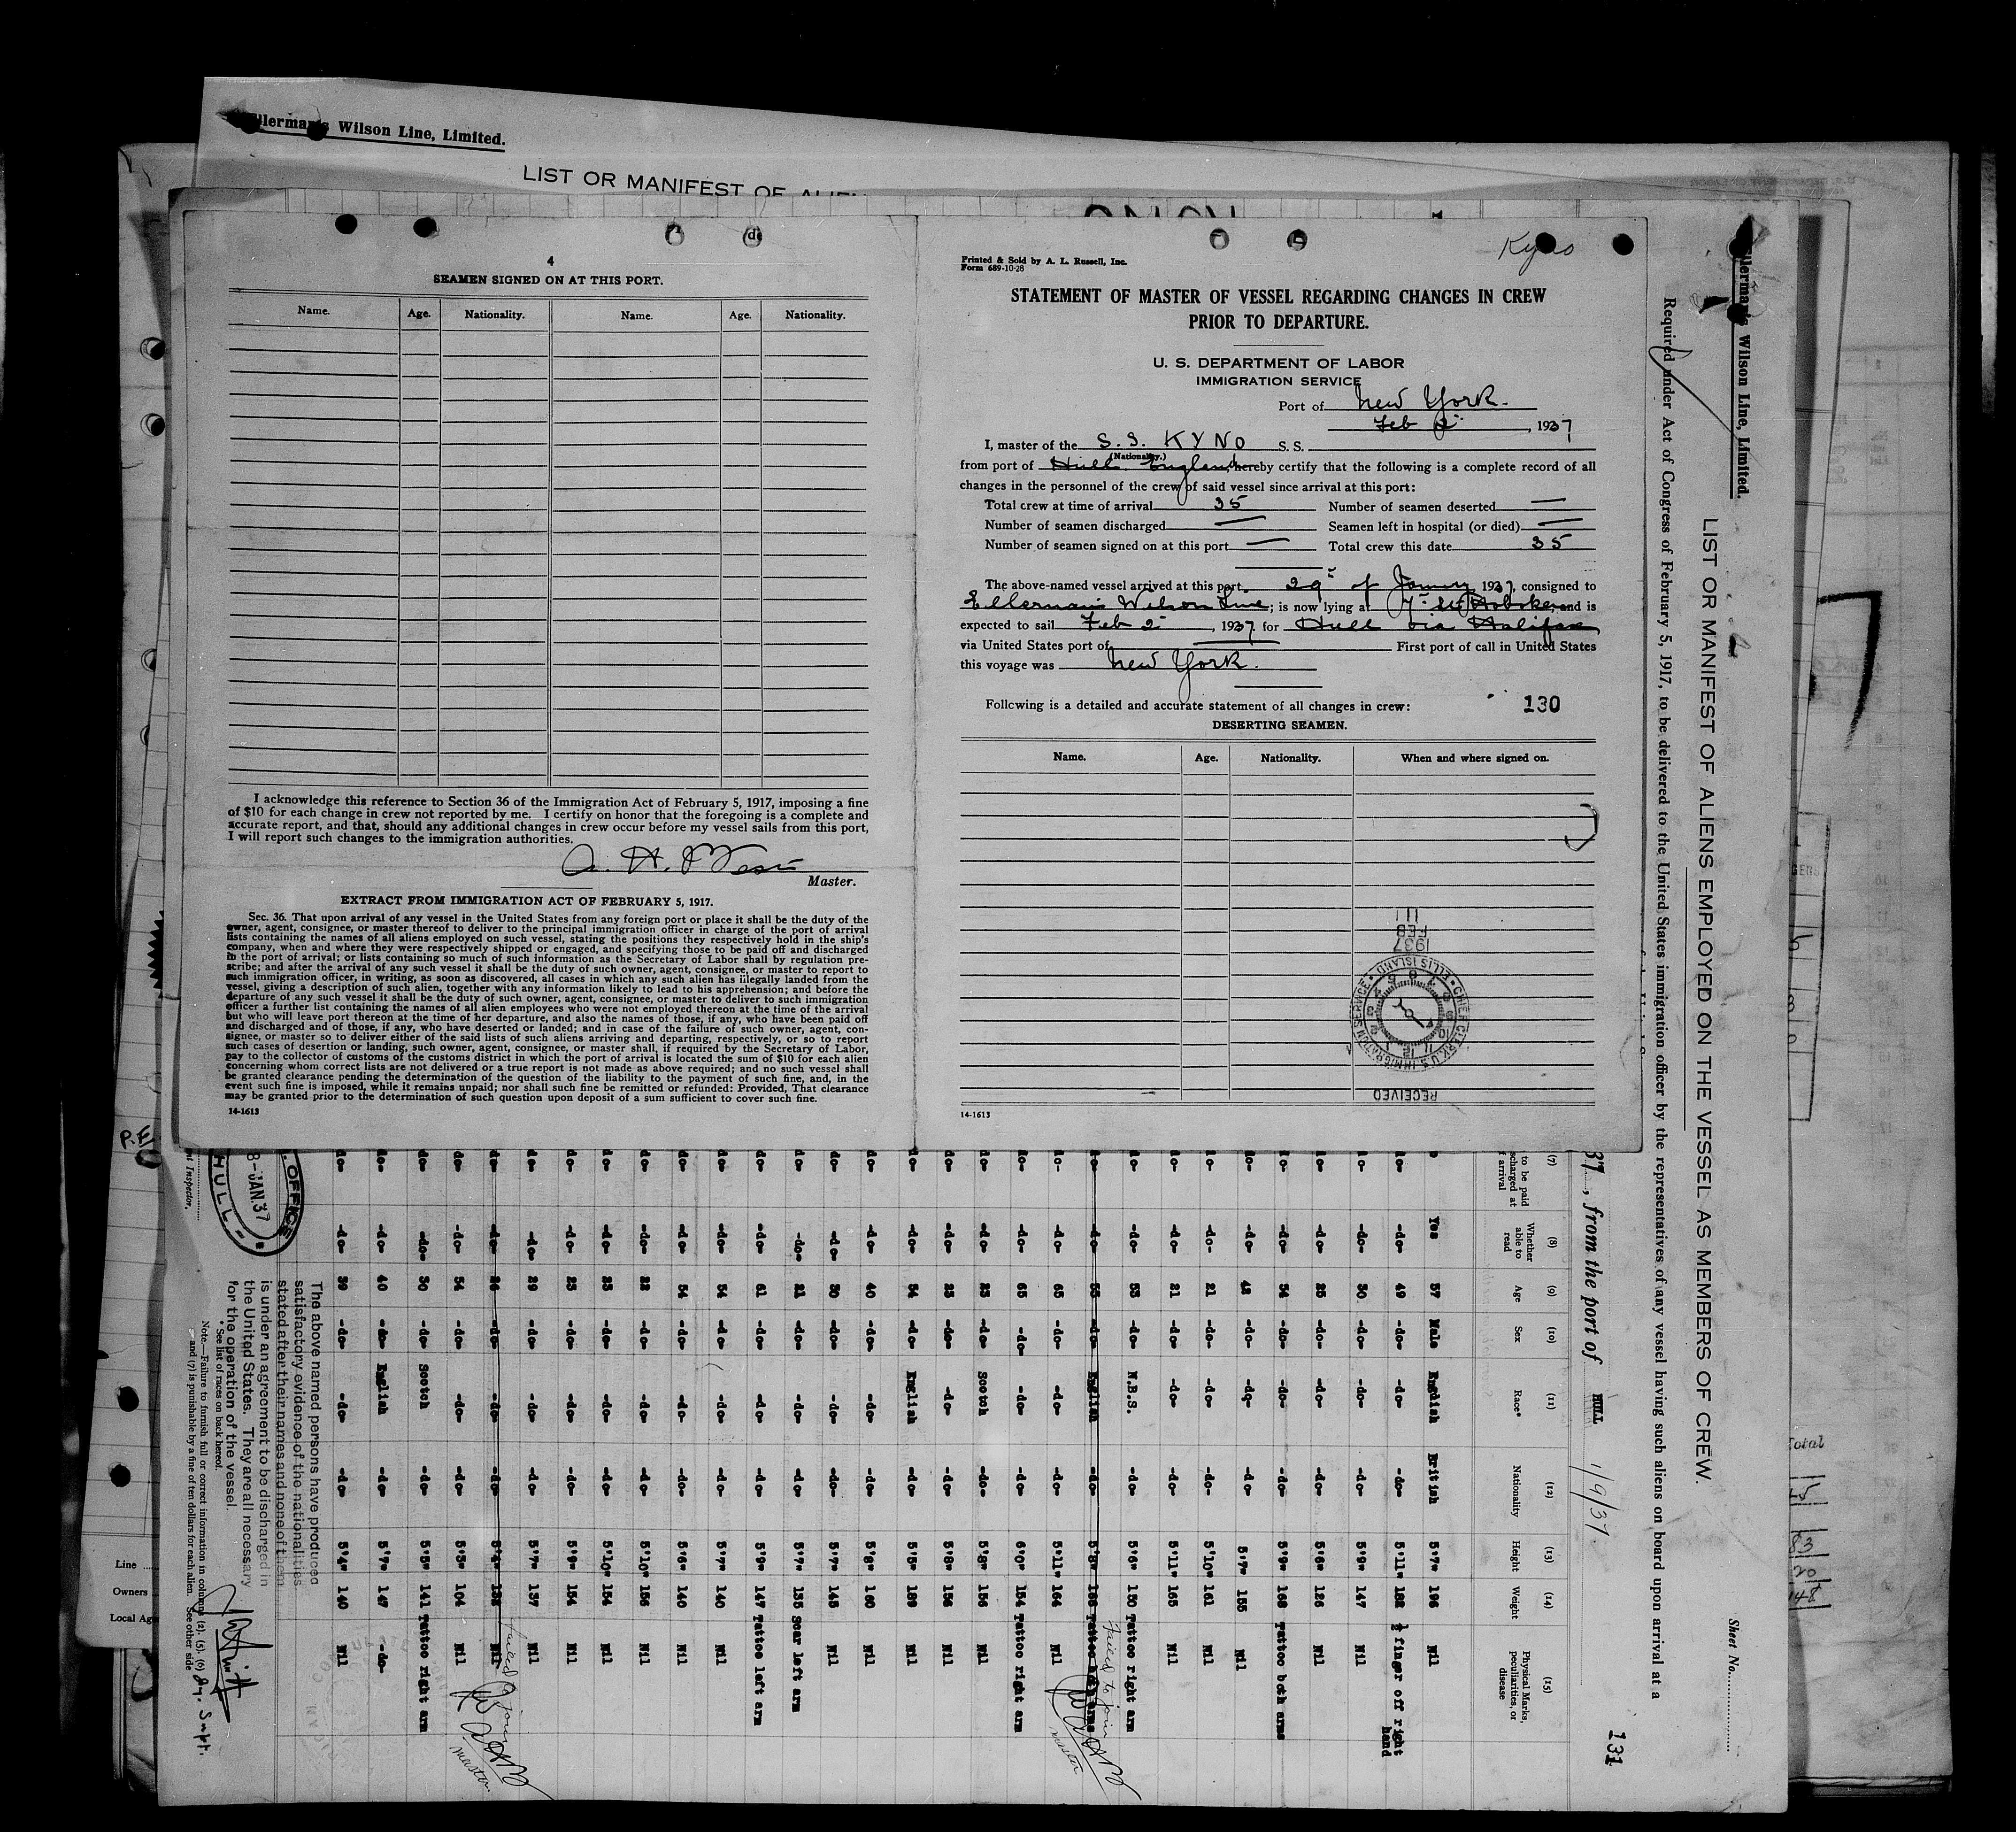 Wilson Line, Limited.
LIST OR MANIFEST OF ALIEN
4
SEAMEN SIGNED ON AT THIS PORT.
Name. Age. Nationality. Name. Age. Nationality.
I acknowledge this reference to Section 36 of the Immigration Act of February 5, 1917, imposing a fine
of $10 for each change in crew not reported by me. I certify on honor that the foregoing is a complete and
accurate report, and that, should any additional changes in crew occur before my vessel sails from this port,
I will report such changes to the immigration authorities.
Master.
EXTRACT FROM IMMIGRATION ACT OF FEBRUARY 5, 1917.
Sec. 36. That upon arrival of any vessel in the United States from any foreign port or place it shall be the duty of the
owner, agent, consignee, or master thereof to deliver to the principal immigration officer in charge of the port of arrival
lists containing the names of all aliens employed on such vessel, stating the positions they respectively hold in the ship's
company, when and where they were respectively shipped or engaged, and specifying those to be paid off and discharged
in the port of arrival; or lists containing so much of such information as the Secretary of Labor shall by regulation pre-
scribe; and after the arrival of any such vessel it shall be the duty of such owner, agent, consignee, or master to report to
such immigration officer, in writing, as soon as discovered, all cases in which any such alien has illegally landed from the
vessel, giving a description of such alien, together with any information likely to lead to his apprehension; and before the
departure of any such vessel it shall be the duty of such owner, agent, consignee, or master to deliver to such immigration
officer a further list containing the names of all alien employees who were not employed thereon at the time of the arrival
but who will leave port thereon at the time of her departure, and also the names of those, if any, who have been paid off
and discharged and of those, if any, who have deserted or landed; and in case of the failure of such owner, agent, con-
signee, or master so to deliver either of the said lists of such aliens arriving and departing, respectively, or so to report
such cases of desertion or landing, such owner, agent, consignee, or master shall, if required by the Secretary of Labor,
pay to the collector of customs of the customs district in which the port of arrival is located the sum of $10 for each alien
concerning whom correct lists are not delivered or a true report is not made as above required; and no such vessel shall
be granted clearance pending the determination of the question of the liability to the payment of such fine, and, in the
event such fine is imposed, while it remains unpaid; nor shall such fine be remitted or refunded: Provided, That clearance
may be granted prior to the determination of such question upon deposit of a sum sufficient to cover such fine.
14-1613
Kyno
Printed & Sold by A. L. Russell, Inc.
Form 689-10-28
STATEMENT OF MASTER OF VESSEL REGARDING CHANGES IN CREW
PRIOR TO DEPARTURE.
U. S. DEPARTMENT OF LABOR
IMMIGRATION SERVICE
Port of New York.
Feb 2, 1937
I, master of the S.S. KYNO S. S.
(Nationality.)
from port of Hull England, hereby certify that the following is a complete record of all
changes in the personnel of the crew of said vessel since arrival at this port:
Total crew at time of arrival 35 Number of seamen deserted —
Number of seamen discharged — Seamen left in hospital (or died) —
Number of seamen signed on at this port — Total crew this date 35
The above-named vessel arrived at this port 29 of January 1937, consigned to
Ellerman's Wilson Line; is now lying at 7 St Hoboken, and is
expected to sail Feb 2, 1937 for Hull via Halifax
via United States port of — First port of call in United States
this voyage was New York.
Following is a detailed and accurate statement of all changes in crew: 130
DESERTING SEAMEN.
Name. Age. Nationality. When and where signed on.
RECEIVED
CHIEF CLERK, U.S. IMMIGRATION SERVICE ELLIS ISLAND
1937
FEB
14-1613
Wilson Line, Limited.
Sheet No.
LIST OR MANIFEST OF ALIENS EMPLOYED ON THE VESSEL AS MEMBERS OF CREW.
Required under Act of Congress of February 5, 1917, to be delivered to the United States immigration officer by the representatives of any vessel having such aliens on board upon arrival at a
37, from the port of HULL 1/9/37.
131
(7) (8) (9) (10) (11) (12) (13) (14) (15)
to be paid
Whether able to read Age Sex Race* Nationality Height Weight Physical Marks, peculiarities, or disease
Yes 37 Male English British 5'7" 196 Nil
-do- 49 -do- -do- -do- 5'11" 182 ½ finger off right hand
-do- 30 -do- -do- -do- 5'9" 147 Nil
-do- 25 -do- -do- -do- 5'6" 126 Nil
-do- 34 -do- -do- -do- 5'9" 168 Tattoo both arms
-do- 42 -do- -do- -do- 5'7" 155 Nil
-do- 21 -do- -do- -do- 5'10" 161 Nil
-do- 21 -do- -do- -do- 5'11" 165 Nil
-do- 53 -do- N.B.S. -do- 5'6" 150 Tattoo right arm
-do- 55 -do- English -do- 5'8" Tattoo both arms
Failed to join
master
-do- 65 -do- -do- -do- 5'11" 164 Nil
-do- 65 -do- -do- -do- 6'0" 154 Tattoo right arm
-do- 23 -do- Scotch -do- 5'8" 156 Nil
-do- 23 -do- -do- -do- 5'8" 156 Nil
-do- 54 -do- English -do- 5'5" 189 Nil
-do- 40 -do- -do- -do- 5'8" 160 Nil
-do- 30 -do- -do- -do- 5'7" 145 Nil
-do- 21 -do- -do- -do- 5'7" 135 Scar left arm
-do- 61 -do- -do- -do- 5'9" 147 Tattoo left arm
-do- 54 -do- -do- -do- 5'7" 140 Nil
-do- 54 -do- -do- -do- 5'6" 140 Nil
-do- 22 -do- -do- -do- 5'10" 156 Nil
-do- 23 -do- -do- -do- 5'10" 154 Nil
-do- 23 -do- -do- -do- 5'9" 154 Nil
-do- 29 -do- -do- -do- 5'7" 137 Nil
-do- -do- -do- -do- 5'4" Nil
Failed to join
master
-do- 54 -do- -do- -do- 5'3" 104 Nil
-do- 30 -do- Scotch -do- 5'5" 141 Tattoo right arm
-do- 40 -do- English -do- 5'7" 147 -do-
-do- 39 -do- -do- -do- 5'4" 140 Nil
OFFICE
8-JAN.37
HULL
The above named persons have produced
satisfactory evidence of the nationalities
stated after their names and none of them
is under an agreement to be discharged in
the United States. They are all necessary
for the operation of the vessel.
* See list of races on back hereof.
Note.—Failure to furnish full or correct information in columns (2), (5), (6)
and (7) is punishable by a fine of ten dollars for each alien. See other side
Line
Owners
Local Ag
Total
83
20
148